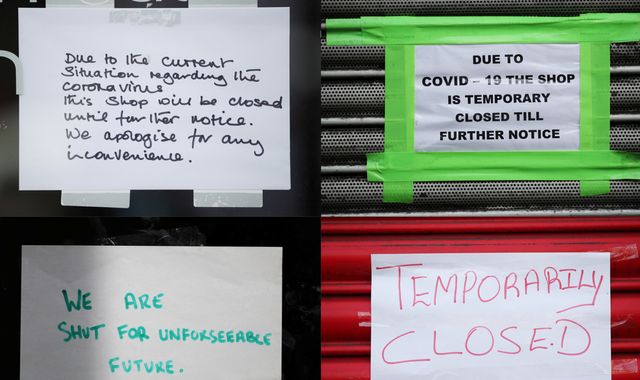 Due to the current
Situation regarding the
coronavirus
this Shop will be closed
until further notice.
We apologise for any
inconvenience.
DUE TO
COVID – 19 THE SHOP
IS TEMPORARY
CLOSED TILL
FURTHER NOTICE
WE ARE
SHUT FOR UNFORSEEABLE
FUTURE.
TEMPORARILY
CLOSED